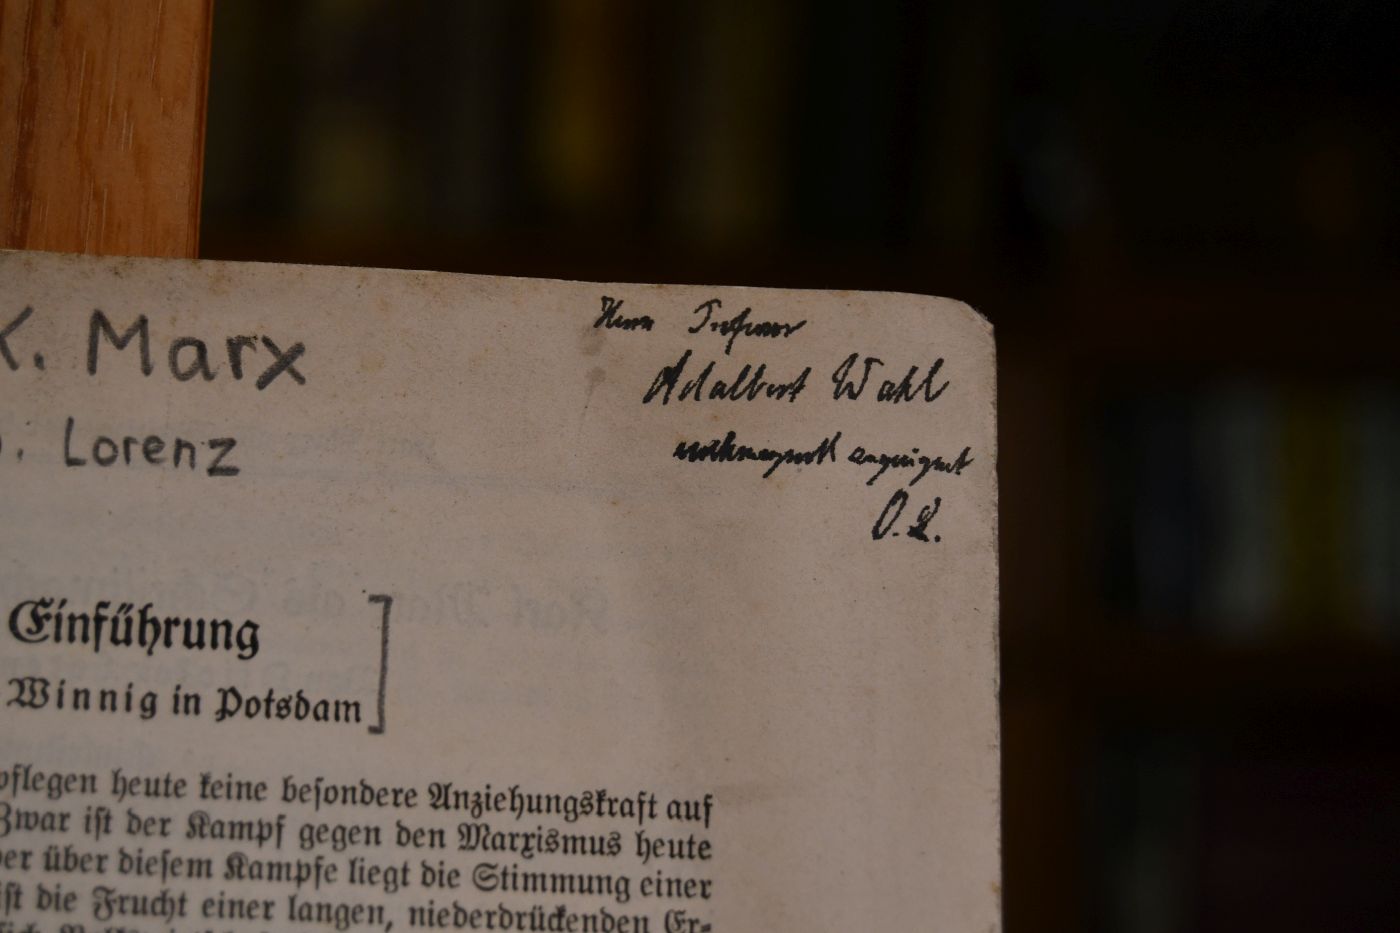 K. Marx
Herrn Professor
Adalbert Wahl
O. Lorenz
hochachtungsvoll zugeeignet
O. L.
Einführung
Winnig in Potsdam
pflegen heute keine besondere Anziehungskraft auf
Zwar ist der Kampf gegen den Marxismus heute
ber über diesem Kampfe liegt die Stimmung einer
ist die Frucht einer langen, niederdrückenden Er-